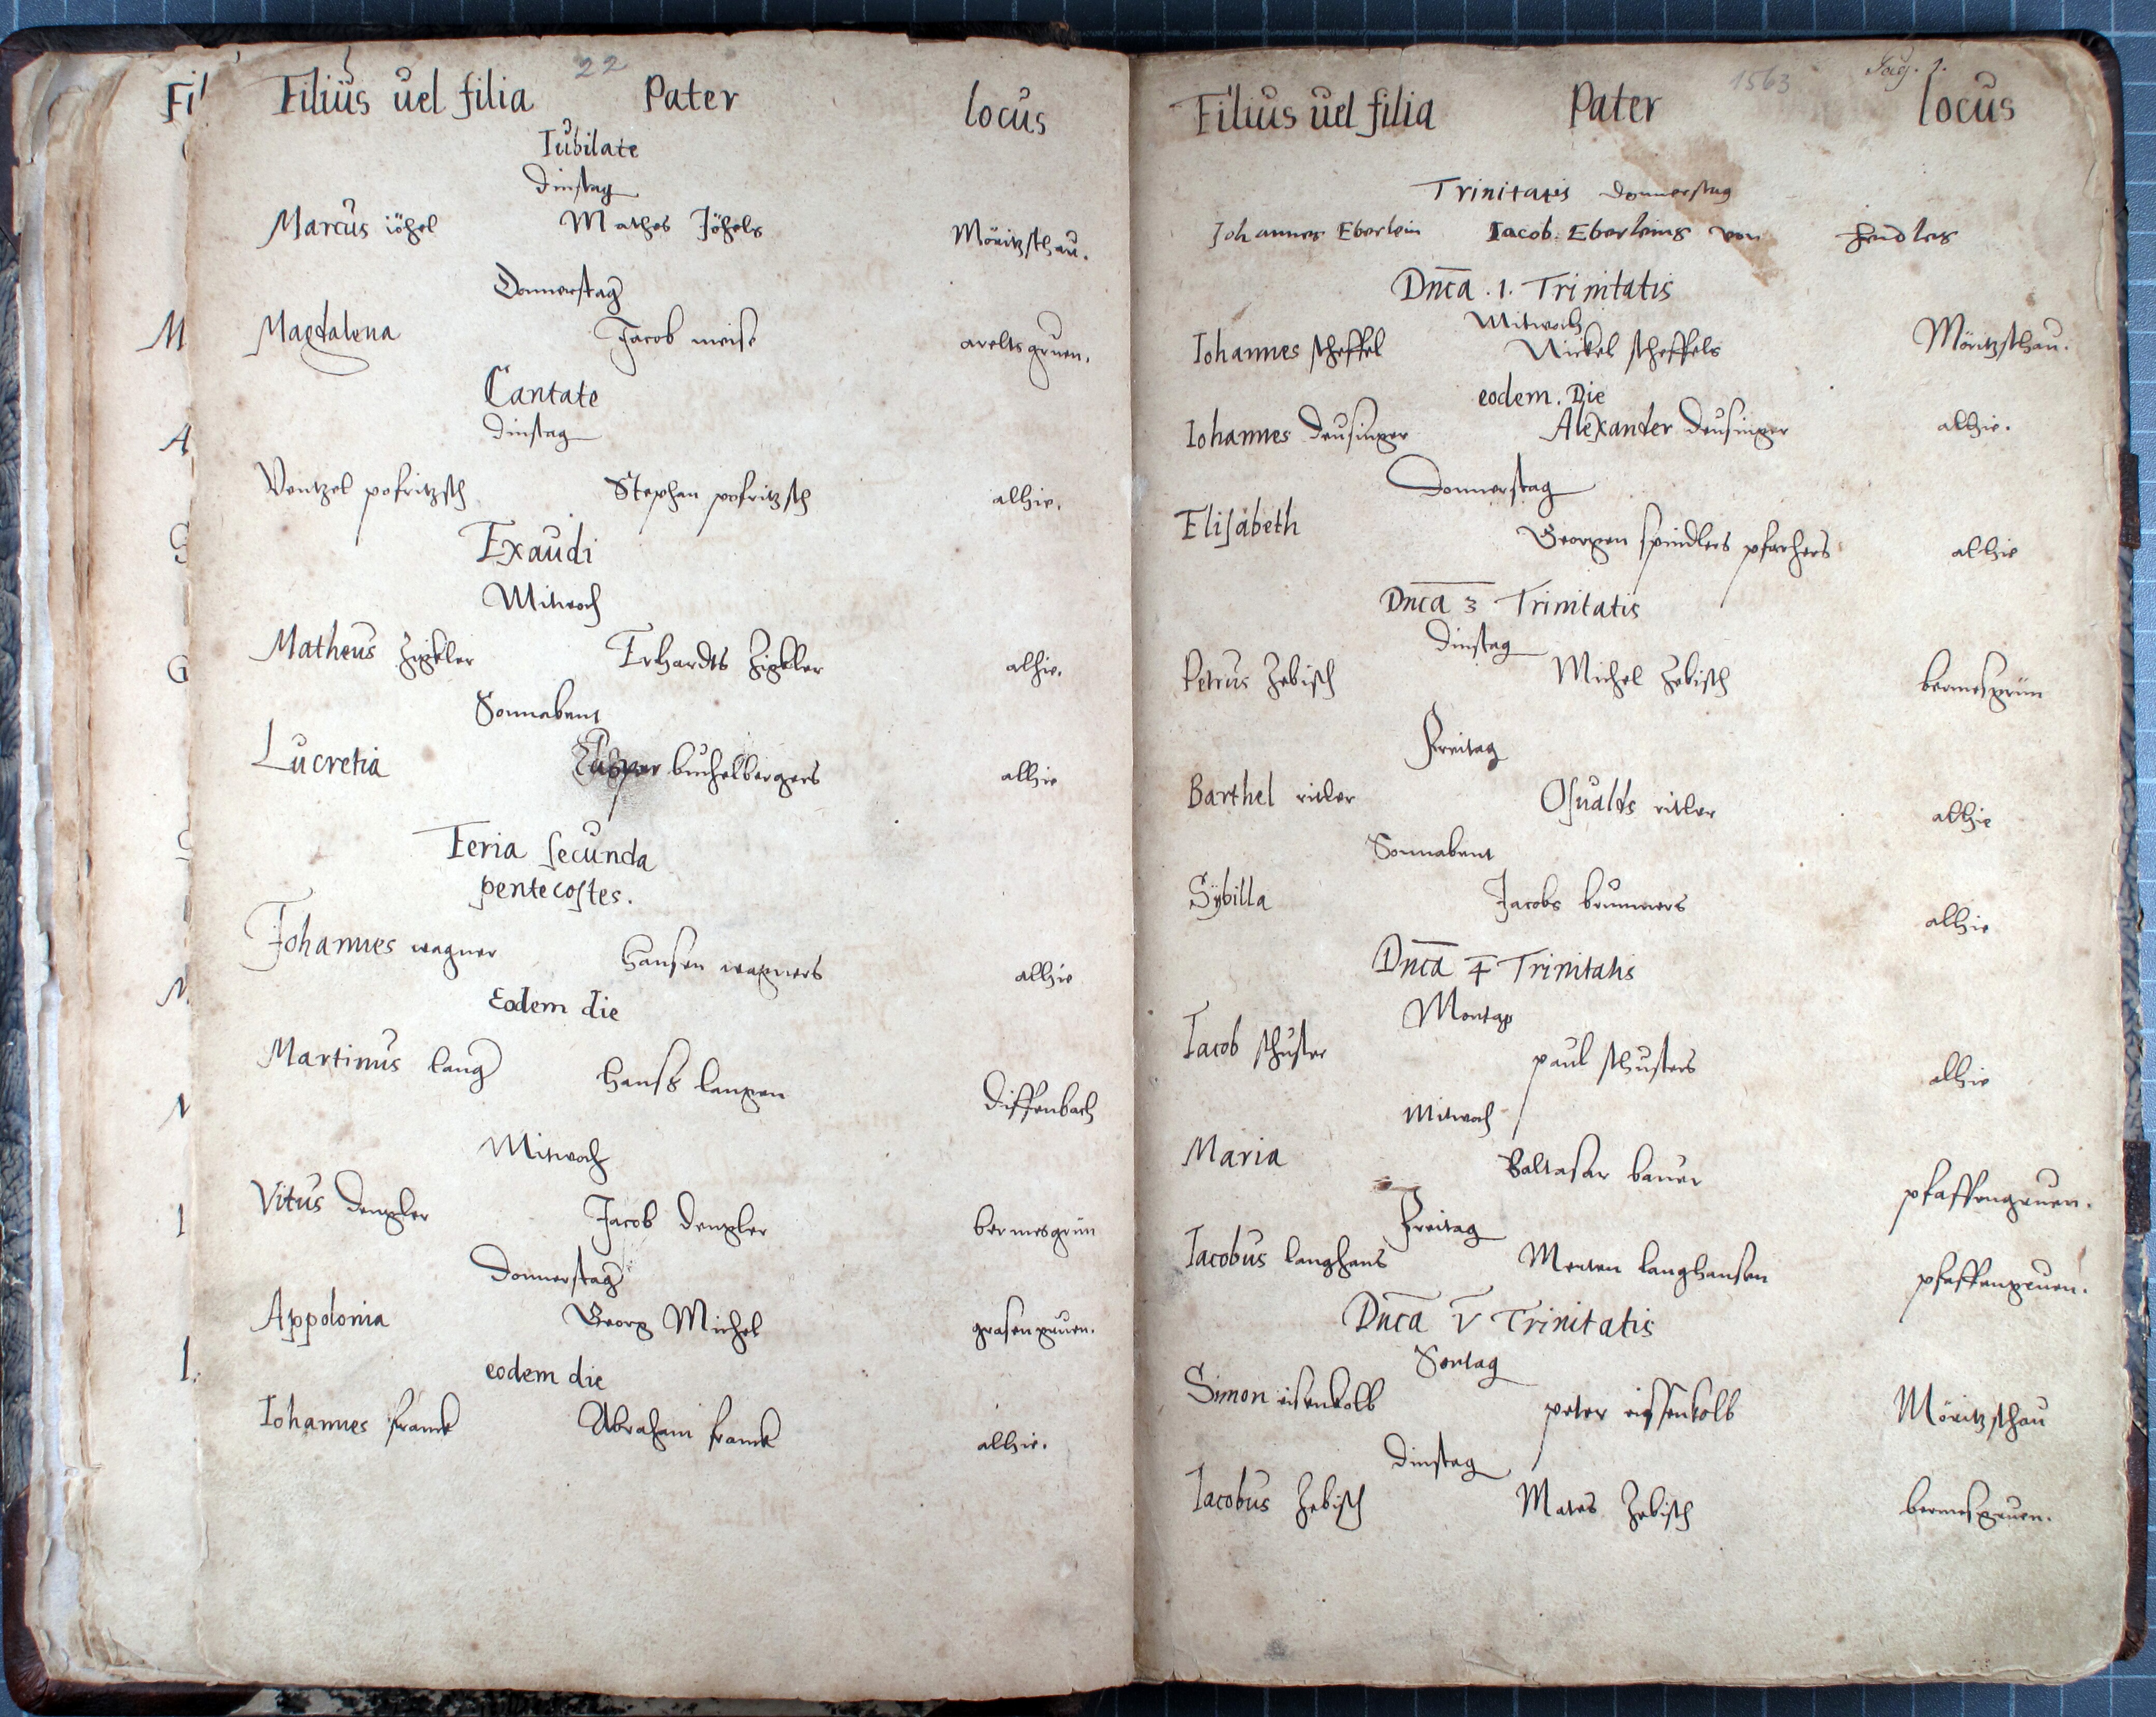 22
Filius uel filia Pater locus
Iubilate
Dinstag
Marcus iöhel Mathes Jöhels Möritzschau.
Donnerstag
Magdalena Jacob meise areltsgruen.
Cantate
dinstag
Ventzel pofritzsch Stephan pofritzsch alhie.
Exaudi
Mitwoch
Matheus Erhardts alhie.
Sonnabent
Lucretia buchelbergers alhie
Feria secunda
pentecostes.
Johannes wagner Hansen wagners alhie
Eodem die
Martinus lang Hanss langen Diffenbach
Mitwoch
Vitus Dengler Jacob Dengler bermesgrün
Donnerstag
Appolonia Georg Michel grasengruen.
eodem die
Iohannes franck Abraham franck alhie.
1563 Pag. 1.
Filius uel filia Pater locus
Trinitatis Donnerstag
Johannes Eberlein Iacob. Eberleins von
Dnca . 1. Trinitatis
Mitwoch
Iohannes scheffel Nickel scheffels Möritzschau.
eodem. Die
Iohannes Deusinger Alexander Deusinger alhie.
Donnerstag
Elisabeth Georgen spindlers pfarhers alhie
Dnca 3 Trinitatis
dinstag
Petrus Zebisch Michel Zebisch bermesgrün
Freitag
Barthel ritler Osualds ritler alhie
Sonnabent
Sÿbilla Jacobs brunners alhie
Dnca 4 Trinitatis
Montag
Iacob schuster paul schusters alhie
Mitwoch
Maria Baltasar bauer pfaffengruen.
Freitag
Iacobus langhans Merten langhansen pfaffengruen.
Dnca V Trinitatis
Sontag
Simon eisenkolb peter eissenkolb Möritzschau
dinstag
Iacobus Zebisch Mates Zebisch bermesgruen.